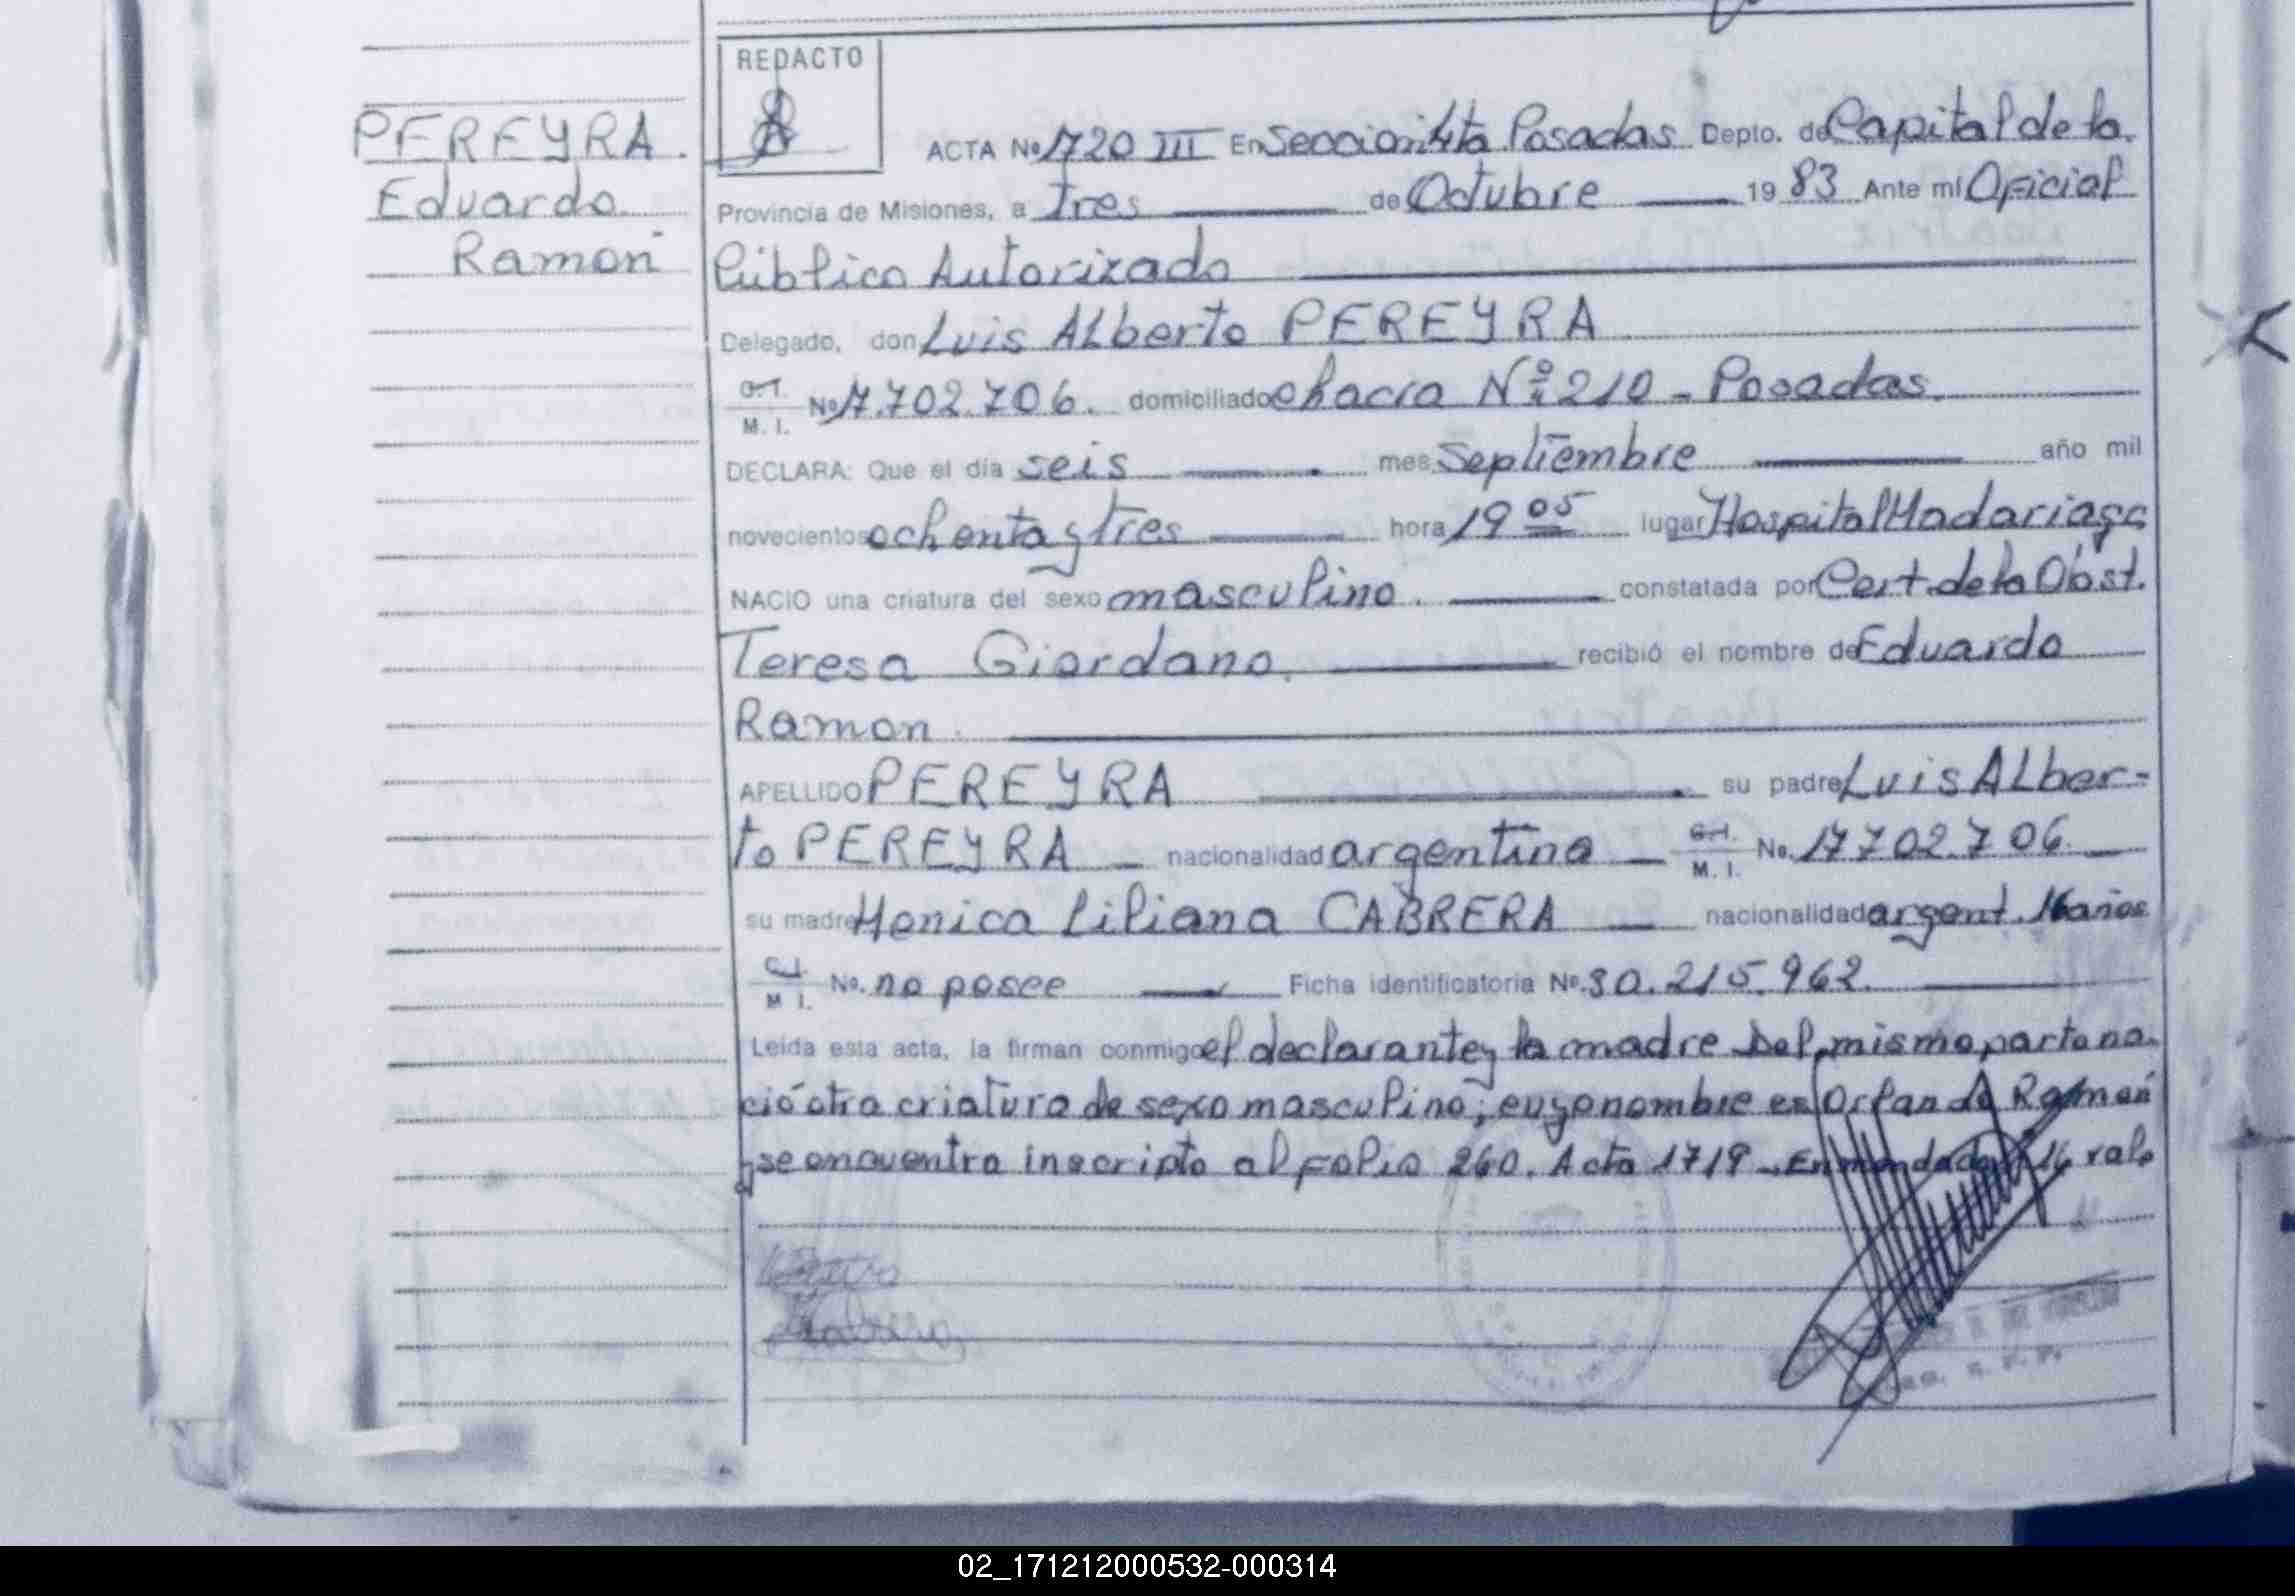 REDACTO
PEREYRA.
Eduardo
Ramón
ACTA No 1720 III En Sección 4ta Posadas Depto. de Capital de la
Provincia de Misiones, a tres de Octubre 1983 Ante mí Oficial
Público Autorizado
Delegado, don Luis ALberto PEREYRA
C.I. M. I. No 17.702.706. domiciliado chacra Nº 210 - Posadas.
DECLARA: Que el día seis mes Septiembre año mil
novecientos ochenta y tres hora 19 05 lugar Hospital Madariaga
NACIO una criatura del sexo masculino. constatada por Cert. de la Obst.
Teresa Giordano. recibió el nombre de Eduardo
Ramon.
APELLIDO PEREYRA su padre Luis ALber-
to PEREYRA nacionalidad argentina C.I. M. I. No. 17702.706.
su madre Monica Liliana CABRERA nacionalidad argent. 16 años
C.I. M I. No. no posee Ficha identificatoria No. 30.215.962.
Leída esta acta, la firman conmigo el declarante y la madre Del mismo parto na-
ció otra criatura de sexo masculino; cuyo nombre es Orlando Ramón
y se encuentra inscripto al folio 260. Acta 1719 - Enmendado 16 vale
02_171212000532-000314